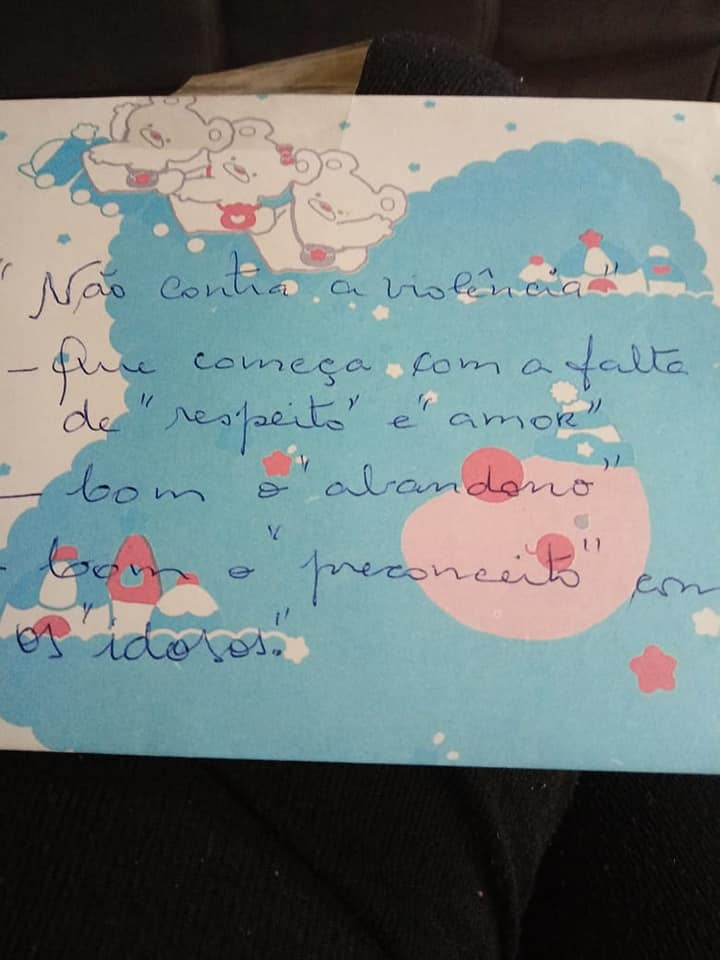 " Não contra a violência"
- Que começa com a falta
de "respeito" e "amor"
- Com o "abandono"
- Com o "preconceito" com
os "idosos."